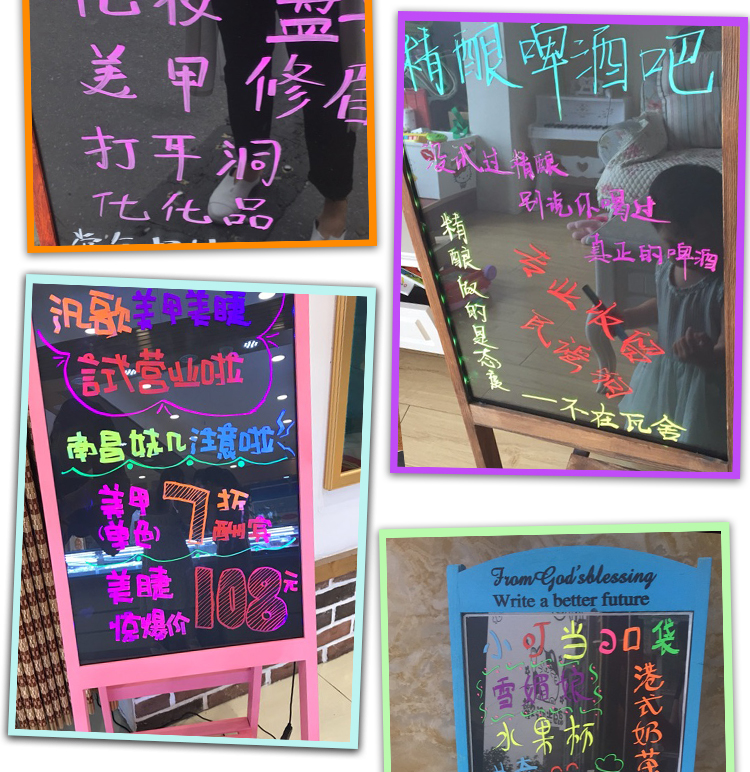 化妆 盘
美甲 修眉
打耳洞
化化品
精酿啤酒吧
没试过精酿
别说你喝过
真正的啤酒
精酿做的是态度
专业长饮
——不在瓦舍
汎歌美甲美睫
試营业啦
南昌妹几注意啦
美甲 7折
(单色) 酬宾
美睫 108元
惊爆价
From God's blessing
Write a better future
小叮当口袋
雪媚娘
水果杯
港式奶